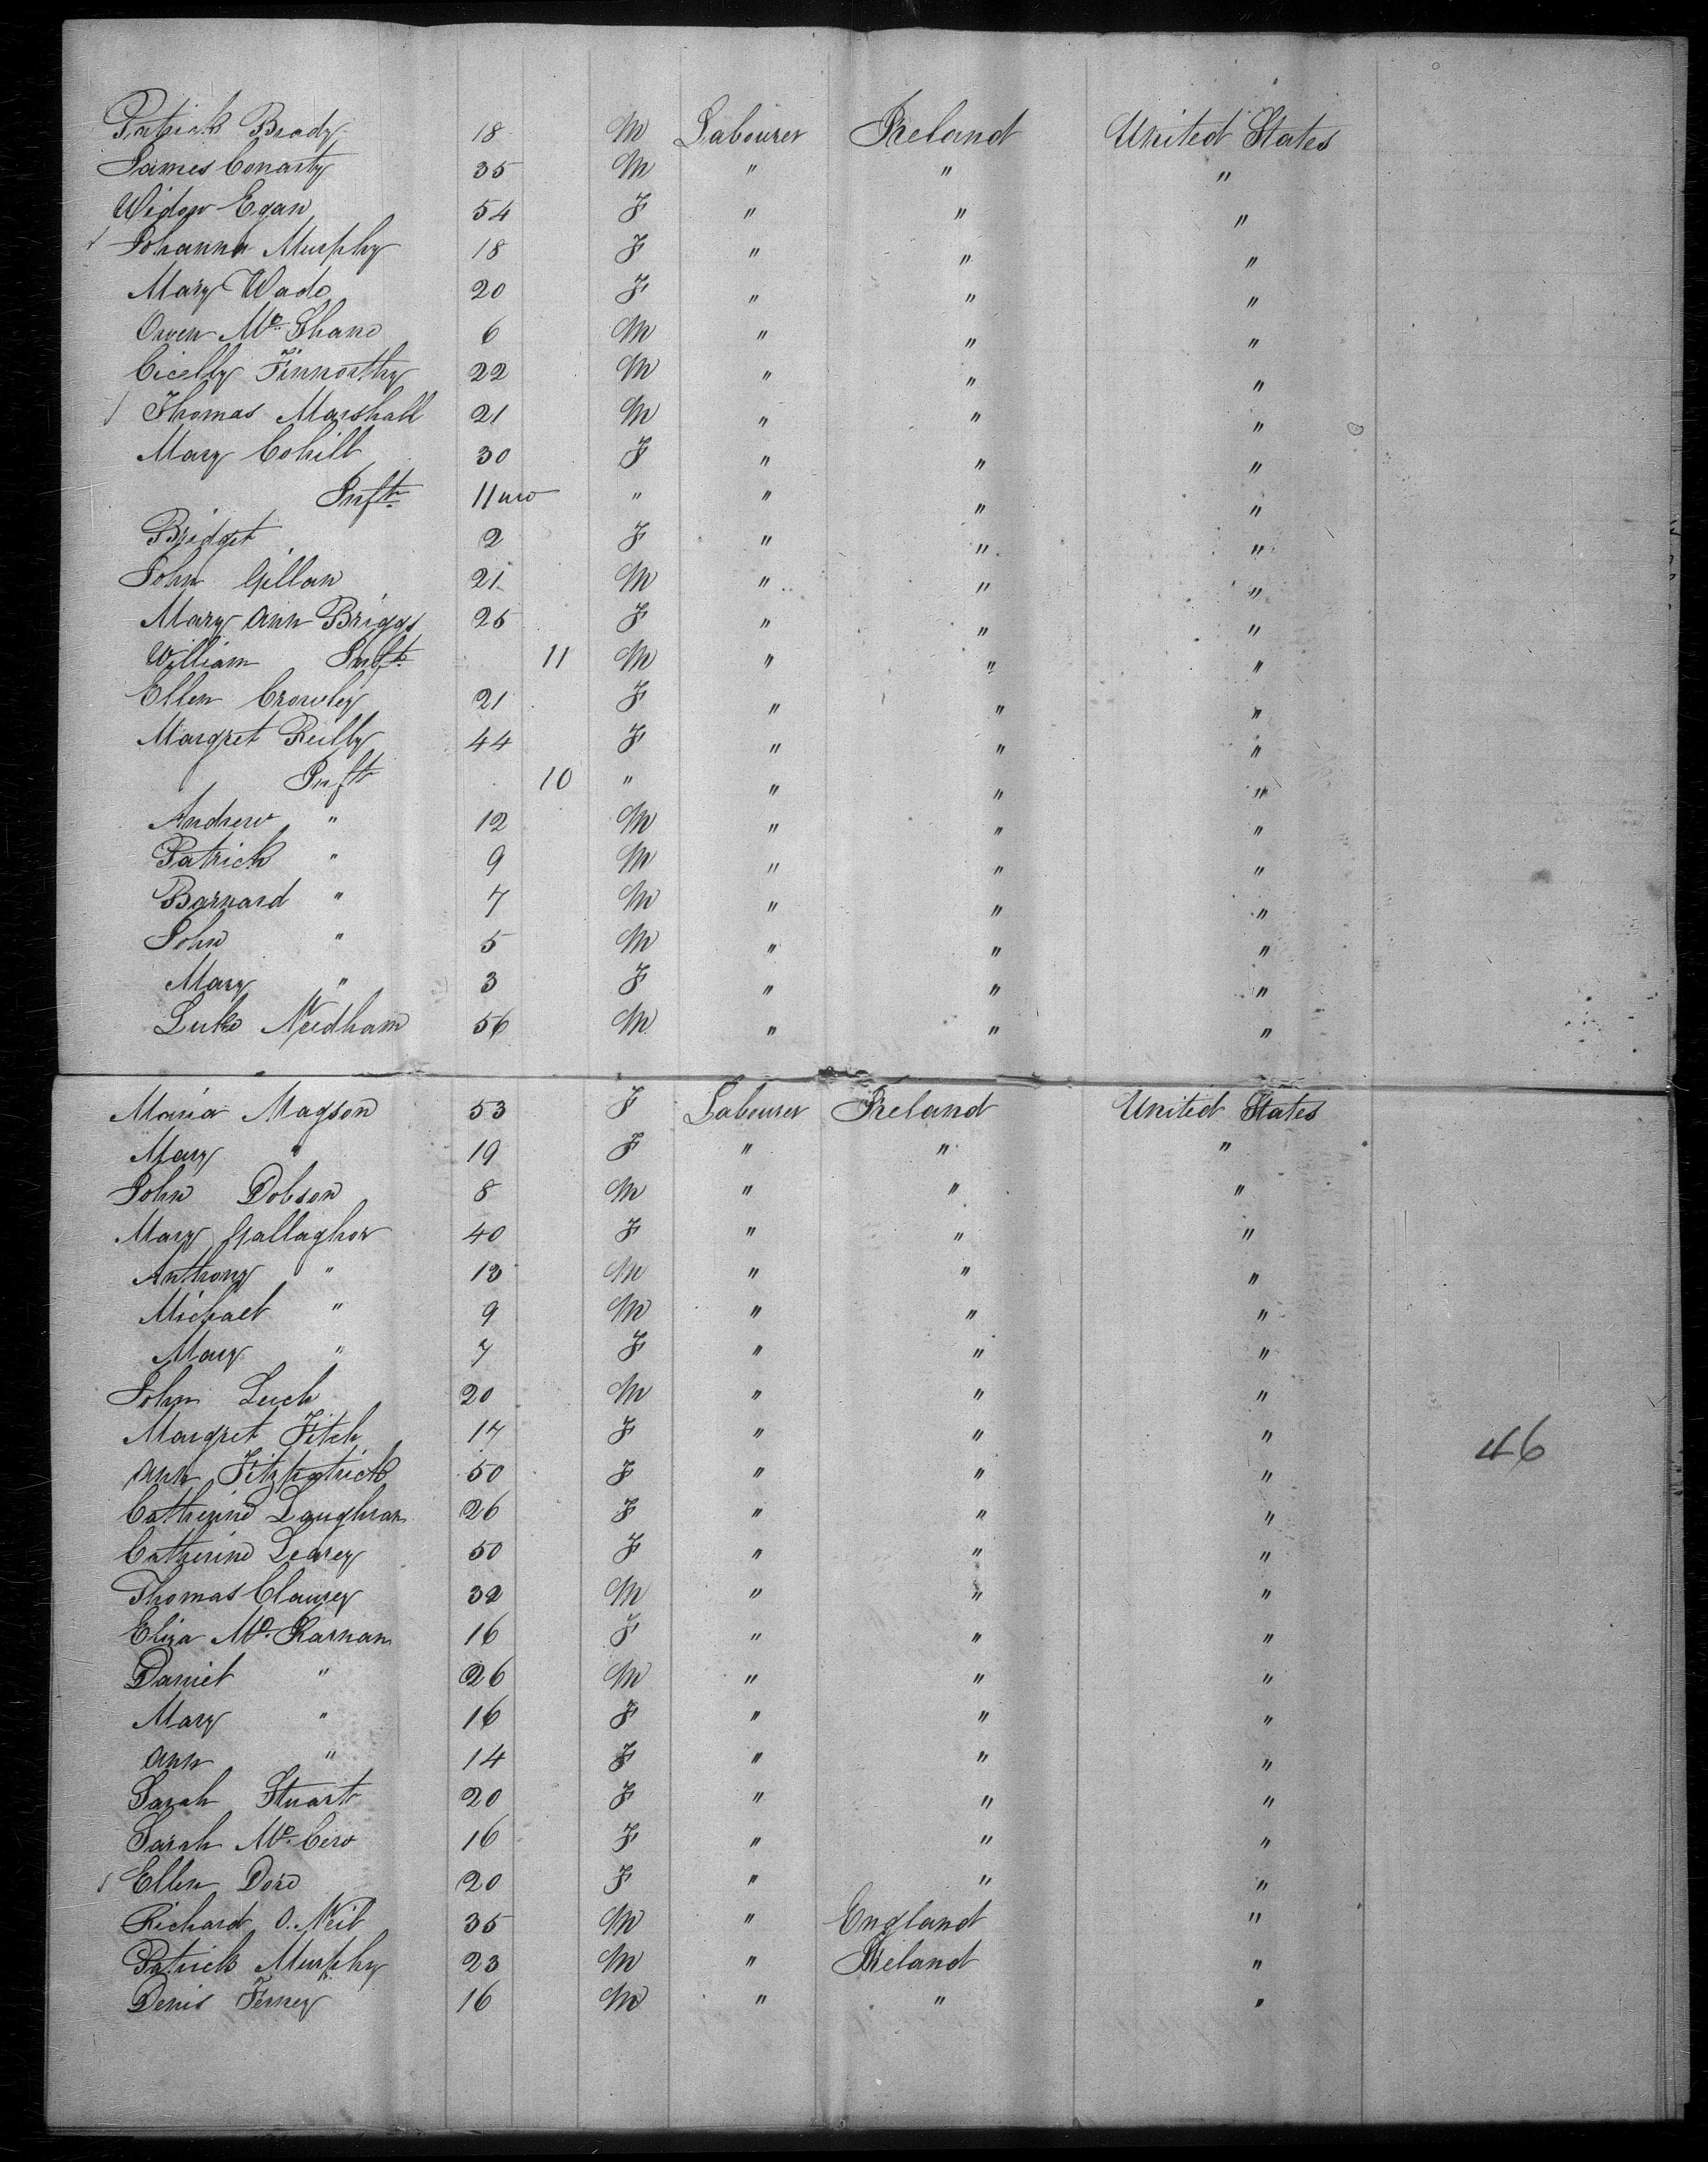 Patrick Brady 18 M Labourer Ireland United States
James Conarty 35 M " " "
Widow Egan 54 F " " "
Johanna Murphy 18 F " " "
Mary Wade 20 F " " "
Owen Mc Shane 6 M " " "
Cicelly Finnorthy 22 M " " "
Thomas Marshall 21 M " " "
Mary Cohill 30 F " " "
Inft 11 mo " " " "
Bridget 2 F " " "
John Gillan 21 M " " "
Mary Ann Briggs 25 F " " "
William Inft 11 M " " "
Ellen Crowley 21 F " " "
Margret Reilly 44 F " " "
Inft 10 " " " "
Andrew " 12 M " " "
Patrick " 9 M " " "
Barnard " 7 M " " "
John " 5 M " " "
Mary " 3 F " " "
Luke Needham 56 M " " "
Maria Magson 53 F Labourer Ireland United States
Mary " 19 F " " "
John Dobson 8 M " " "
Mary Gallagher 40 F " " "
Anthony " 13 M " " "
Michael " 9 M " " "
Mary " 7 F " " "
John Leech 20 M " " "
Margret Fitch 17 F " " "
46
Ann Fitzpatrick 50 F " " "
Catherine Laughran 26 F " " "
Catherine Learey 50 F " " "
Thomas Clausey 32 M " " "
Eliza Mc Karnan 16 F " " "
Daniel " 26 M " " "
Mary " 16 F " " "
Ann " 14 F " " "
Sarah Stuart 20 F " " "
Sarah Mc 16 F " " "
Ellen Dore 20 F " " "
Richard O. Neil 35 M " England "
Patrick Murphy 23 M " Ireland "
Denis Ferney 16 M " " "